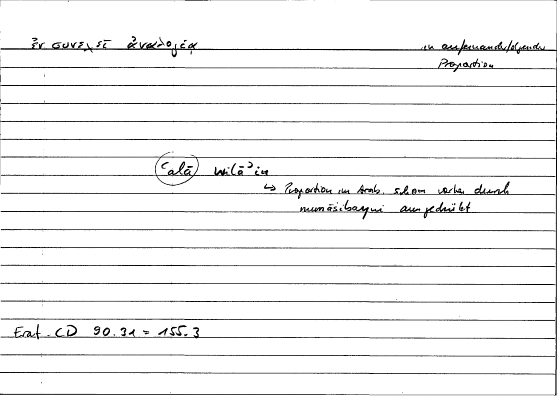 ἐν συνεχεῖ ἀναλογίᾳ
in aufeinanderfolgender
Proportion
ʿalā wilāʾin
↳ Proportion im Arab. schon vorher durch
munāsibayni ausgedrückt
Erat. CD 90.31 = 155.3